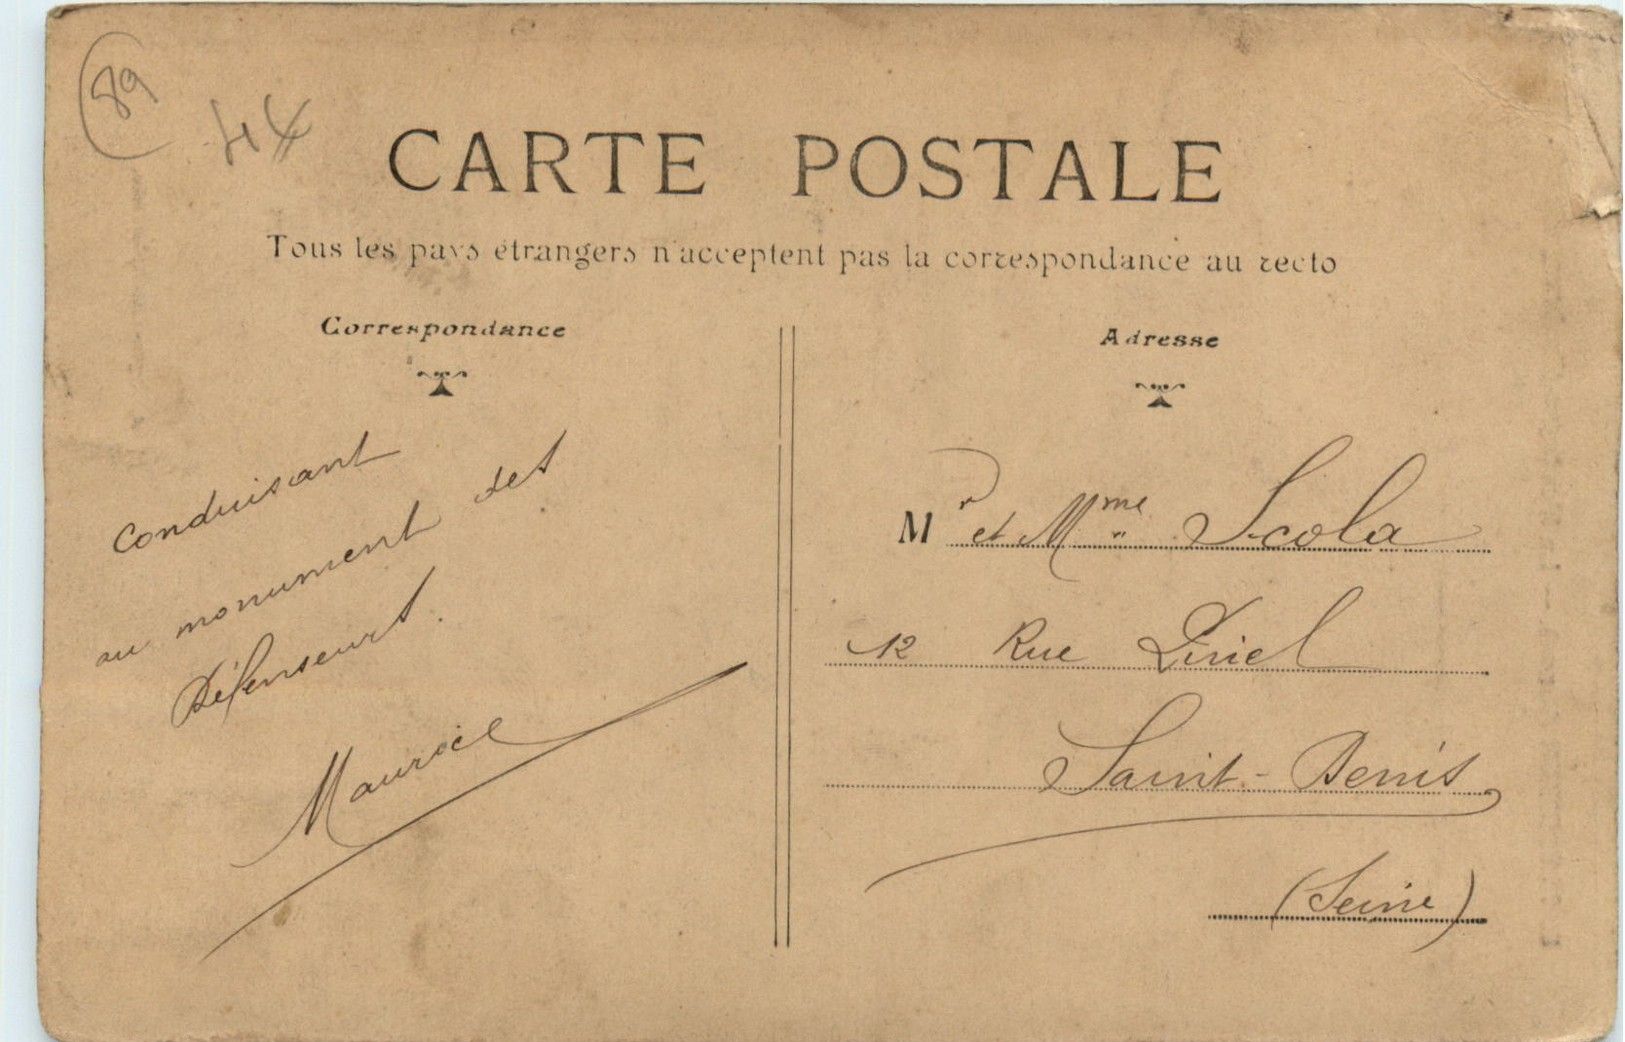 89
4€
CARTE POSTALE
Tous les pays étrangers n'acceptent pas la correspondance au recto
Correspondance
conduisant
au monument des
Défenseurs.
Maurice
Adresse
Mr et Mme Scola
12 Rue Pinel
Saint-Denis
(Seine)